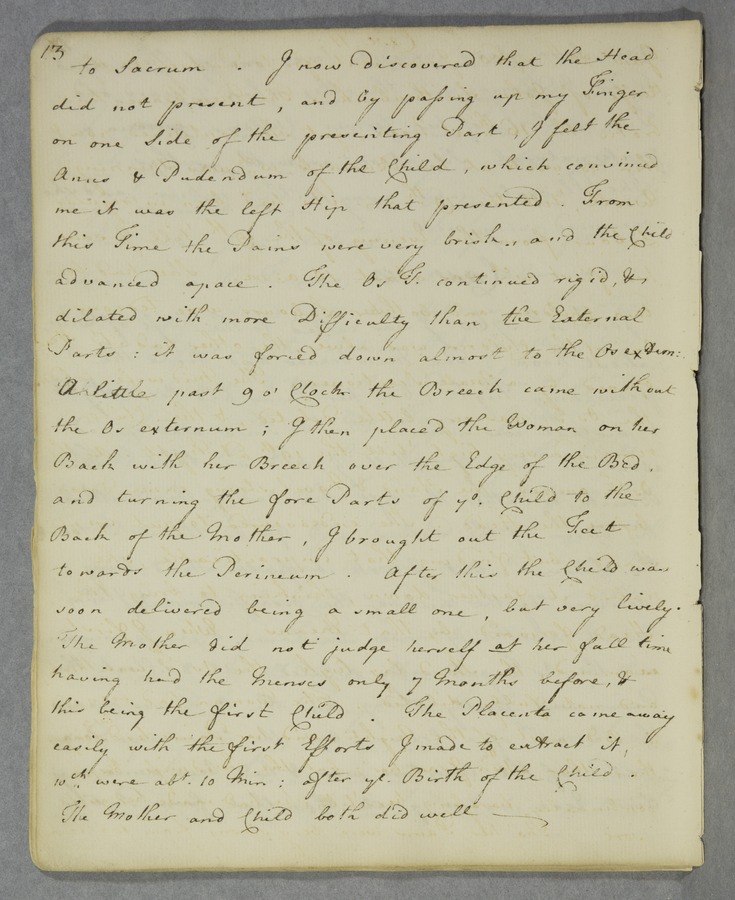 13
to Sacrum . I now discovered that the Head
did not present, and by passing up my Finger
on one Side of the presenting Part, I felt the
Anus & Pudendum of the Child, which convinced
me it was the left Hip that presented. From
this Time the Pains were very brisk, and the Child
advanced apace. The Os T. continued rigid, &
dilated with more Difficulty than the External
Parts: it was forced down almost to the Os extern:
A little past 9 o' Clock the Breech came without
the Os externum; I then placed the Woman on her
Back with her Breech over the Edge of the Bed,
and turning the fore Parts of ye. Child to the
Back of the Mother, I brought out the Feet
towards the Perineum. After this the Child was
soon delivered being a small one, but very lively.
The Mother did not judge herself at her full time
having had the Menses only 7 Months before, &
this being the first Child. The Placenta came away
easily with the first Efforts I made to extract it,
wch. were abt. 10 Min: after ye. Birth of the Child.
The Mother and Child both did well —